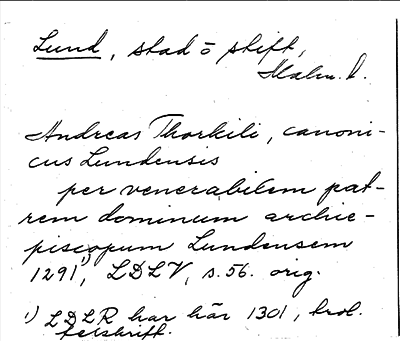 Lund, stad o stift,
Malm. l.
Andreas Thorkili, canoni-
cus Lundensis
per venerabilem pat-
rem dominum archie-
piscopum Lundensem
1291¹), LDLV, s. 56. orig.
1) LDLR har här 1301, trol.
felskrift.